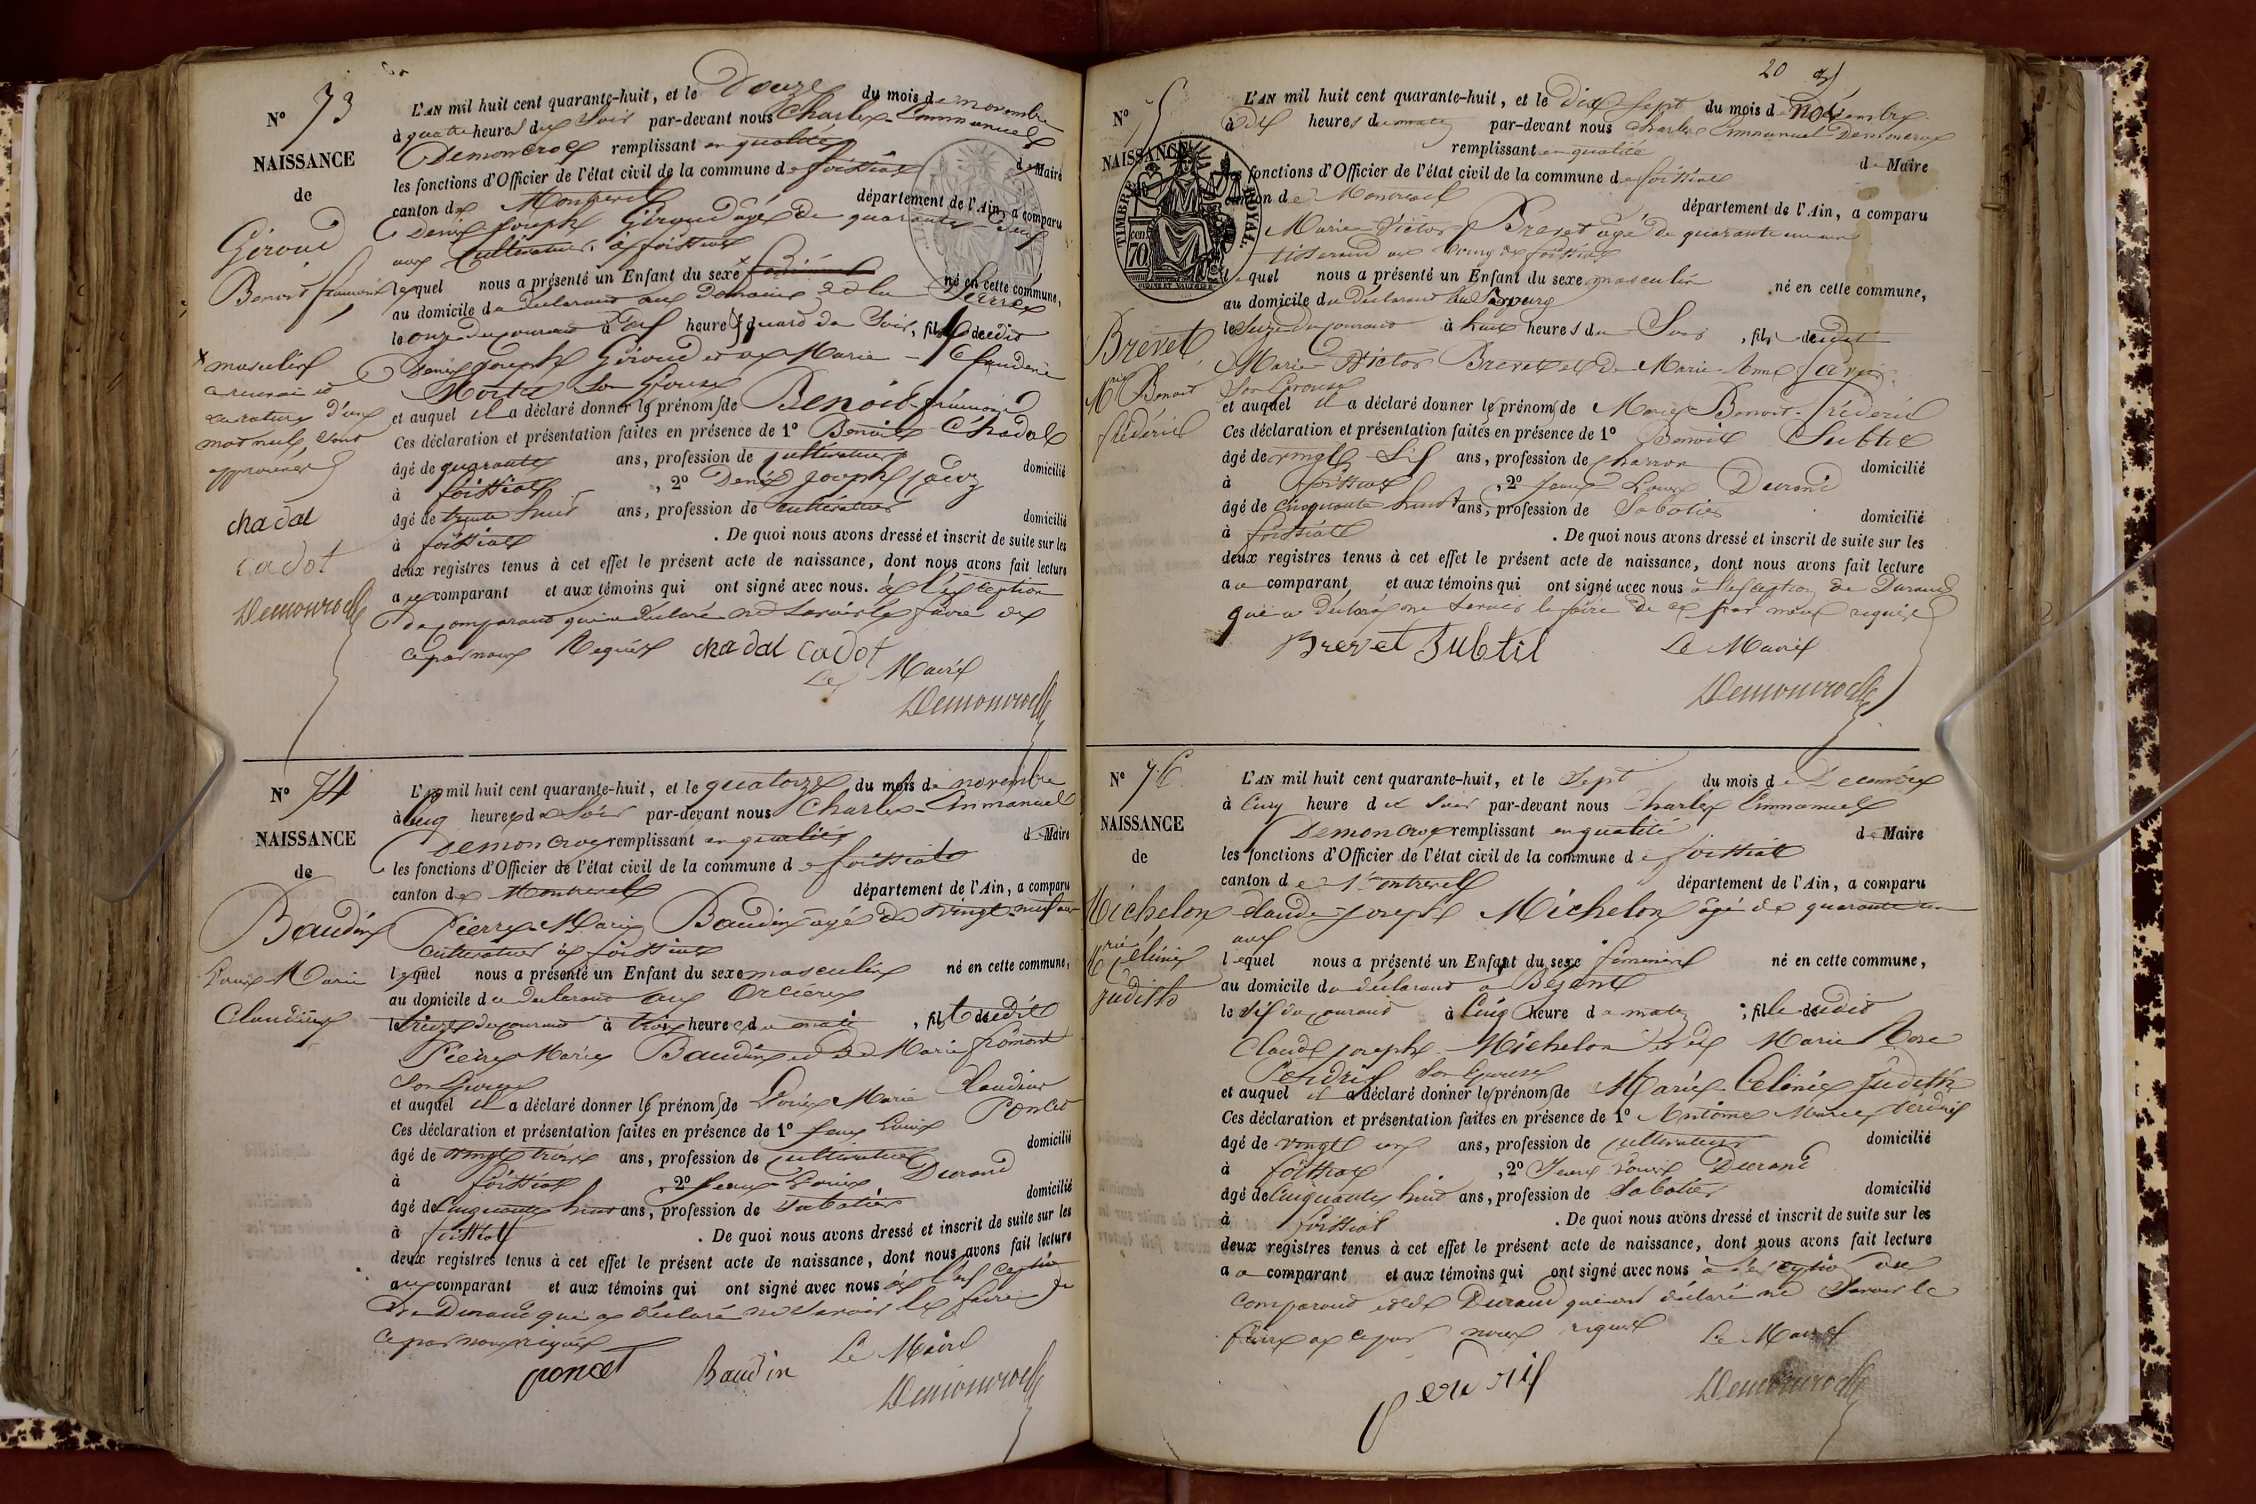 N° 73
NAISSANCE
de
Giroud
Benoit
* masculin
mot nul sont
chadal
cadot
Demoncroex
L'AN mil huit cent quarante-huit, et le Douze du mois de novembre
à quatre heures du Soir par-devant nous Charles-Emmanuel
Demoncroex remplissant en qualité de Maire
les fonctions d'Officier de l'état civil de la commune de foissiat
canton de Montrevel département de l'Ain, a comparu
Denis Joseph Giroud âgé de quarante-deux
ans Cultivateur à foissiat
lequel nous a présenté un Enfant du sexe * né en cette commune,
au domicile du déclarant aux Domaine de la
le onze du courant à heure quard du Soir, fils dudit
Denis Joseph Giroud et de Marie - Claudine
son Epouse
et auquel il a déclaré donner les prénoms de Benoit
Ces déclaration et présentation faites en présence de 1° Benoit Chadal
âgé de quarante ans, profession de cultivateur domicilié
à foissiat, 2° Denis Joseph
âgé de trente huit ans, profession de cultivateur domicilié
à foissiat. De quoi nous avons dressé et inscrit de suite sur les
deux registres tenus à cet effet le présent acte de naissance, dont nous avons fait lecture
au comparant et aux témoins qui ont signé avec nous. à l'exception
du comparant qui a déclaré ne savoir le faire de
ce par nous Requis chadal cadot
Le Maire
Demoncroex
N° 74
NAISSANCE
de
Baudin
Louis Marie
Claudius
L'AN mil huit cent quarante-huit, et le quatorze du mois de novembre
à Cinq heures du Soir par-devant nous Charles-Emmanuel
Demoncroex remplissant en qualité de Maire
les fonctions d'Officier de l'état civil de la commune de foissiat
canton de Montrevel département de l'Ain, a comparu
Pierre Marie Baudin âgé de vingt-neuf ans
cultivateur à foissiat
lequel nous a présenté un Enfant du sexe masculin né en cette commune,
au domicile du déclarant aux Orcières
le treize du courant à trois heures du matin, fils dudit
Pierre Marie Baudin et de Marie fromont
son Epouse
et auquel il a déclaré donner les prénoms de Louis Marie Claudius
Ces déclaration et présentation faites en présence de 1° Jean Louis Poncet
âgé de vingt trois ans, profession de cultivateur domicilié
à foissiat, 2° Jean-Louis Durand
âgé de Cinquante huit ans, profession de sabotier domicilié
à foissiat. De quoi nous avons dressé et inscrit de suite sur les
deux registres tenus à cet effet le présent acte de naissance, dont nous avons fait lecture
au comparant et aux témoins qui ont signé avec nous à l'exception
de Durand qui a déclaré ne savoir le faire de
ce par nous requis
poncet Baudin Le Maire
Demoncroex
20
N° 75
NAISSANCE
TIMBRE ROYAL
70 cen.
Brevet
Mie Benoit
frédéric
L'AN mil huit cent quarante-huit, et le Dix sept du mois de novembre
à dix heures du matin par-devant nous Charles Emmanuel Demoncroex
remplissant en qualité de Maire
les fonctions d'Officier de l'état civil de la commune de foissiat
canton de Montrevel département de l'Ain, a comparu
Marie-Victor Brevet âgé de quarante un ans
tisserand au bourg de foissiat
lequel nous a présenté un Enfant du sexe masculin né en cette commune,
au domicile du déclarant au bourg
le seize du courant à huit heures du Soir, fils dudit
Marie Victor Brevet et de Marie-Anne
son Epouse
et auquel il a déclaré donner les prénoms de Marie Benoit-frédéric
Ces déclaration et présentation faites en présence de 1° Benoit Subtil
âgé de vingt six ans, profession de charron domicilié
à foissiat, 2° Jean Louis Durand
âgé de cinquante huit ans, profession de sabotier domicilié
à foissiat. De quoi nous avons dressé et inscrit de suite sur les
deux registres tenus à cet effet le présent acte de naissance, dont nous avons fait lecture
au comparant et aux témoins qui ont signé avec nous à l'exception de Durand
qui a déclaré ne savoir le faire de ce par nous requis
Brevet Subtil Le Maire
Demoncroex
N° 76
NAISSANCE
de
Michelon
Mie Celinie
Judith
L'AN mil huit cent quarante-huit, et le Sept du mois de Décembre
à Cinq heure du soir par-devant nous Charles Emmanuel
Demoncroex remplissant en qualité de Maire
les fonctions d'Officier de l'état civil de la commune de foissiat
canton de Montrevel département de l'Ain, a comparu
Claude-Joseph Michelon âgé de quarante un
ans
lequel nous a présenté un Enfant du sexe féminin né en cette commune,
au domicile du déclarant à Bezent
le six du courant à Cinq heure du matin; fille dudit
Claude Joseph Michelon et de Marie Rose
Perdrix son Epouse
et auquel il a déclaré donner les prénoms de Marie Celinie Judith
Ces déclaration et présentation faites en présence de 1° Antoine Marie Perdrix
âgé de vingt un ans, profession de cultivateur domicilié
à foissiat, 2° Jean Louis Durand
âgé de Cinquante huit ans, profession de sabotier domicilié
à foissiat. De quoi nous avons dressé et inscrit de suite sur les
deux registres tenus à cet effet le présent acte de naissance, dont nous avons fait lecture
au comparant et aux témoins qui ont signé avec nous à l'exception du
comparant et de Durand qui ont déclaré ne Savoir le
faire de ce par nous requis Le Maire
perdrix Demoncroex